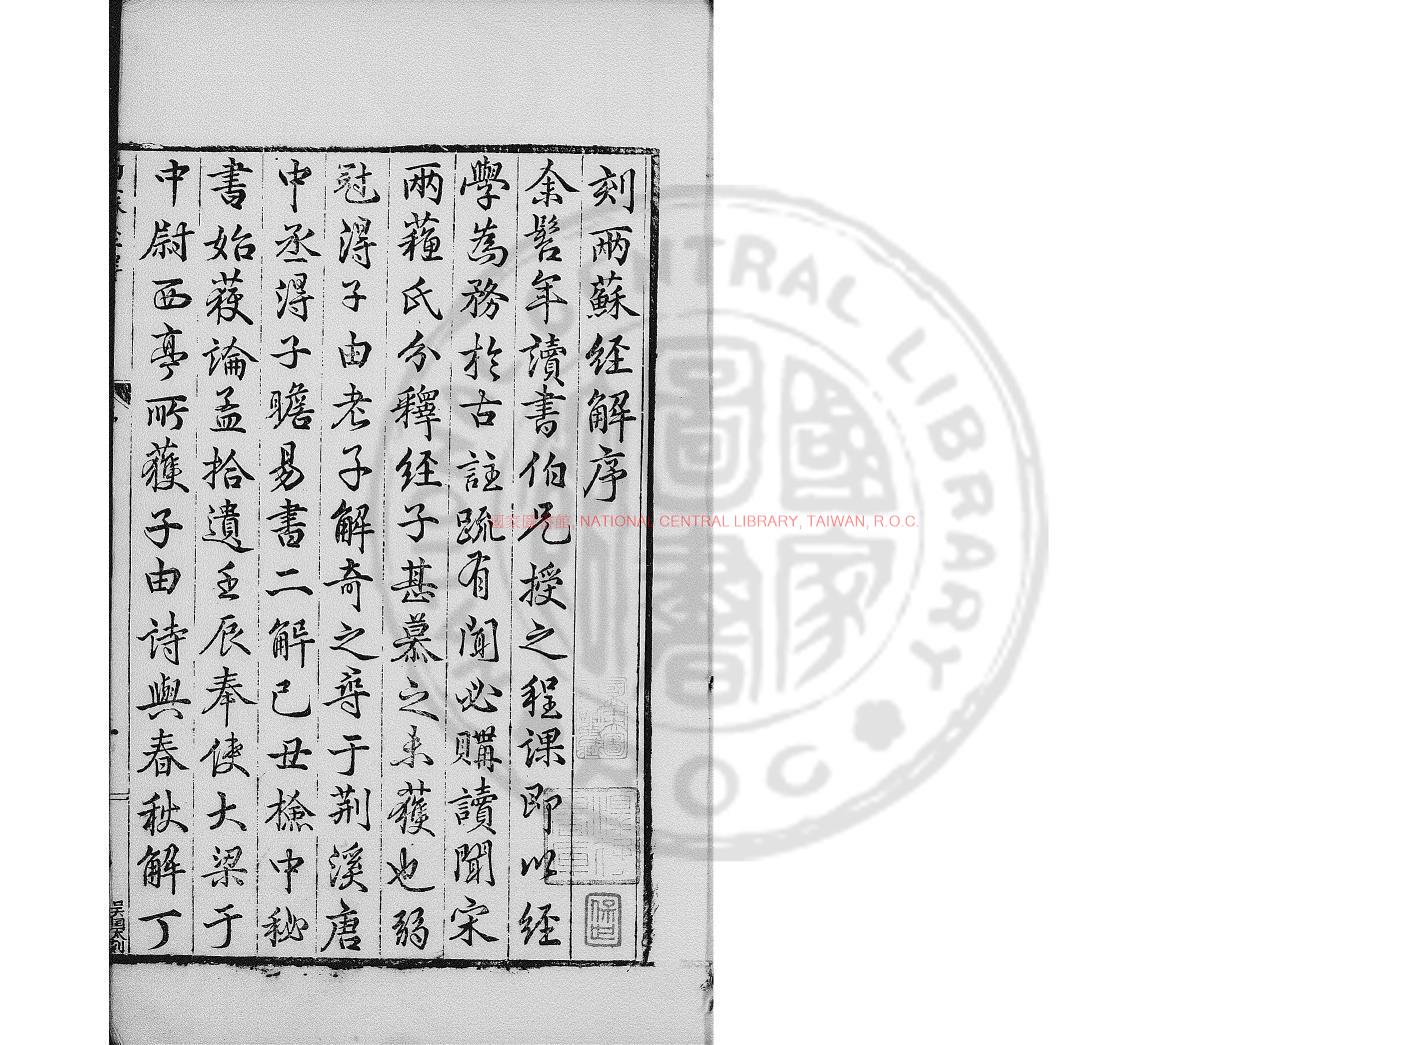 刻兩蘇經解序
余髫年讀書伯兄授之程課即以經
學為務於古註疏有聞必購讀聞宋
兩蘓氏分釋經子甚慕之未獲也弱
冠得子由老子解奇之尋于荆溪唐
中丞得子瞻易書二解己丑檢中秘
書始莪論孟拾遺壬辰奉使大梁于
中尉西亭所獲子由詩與春秋解丁
國家圖書館, NATIONAL CENTRAL LIBRARY, TAIWAN, R.O.C.